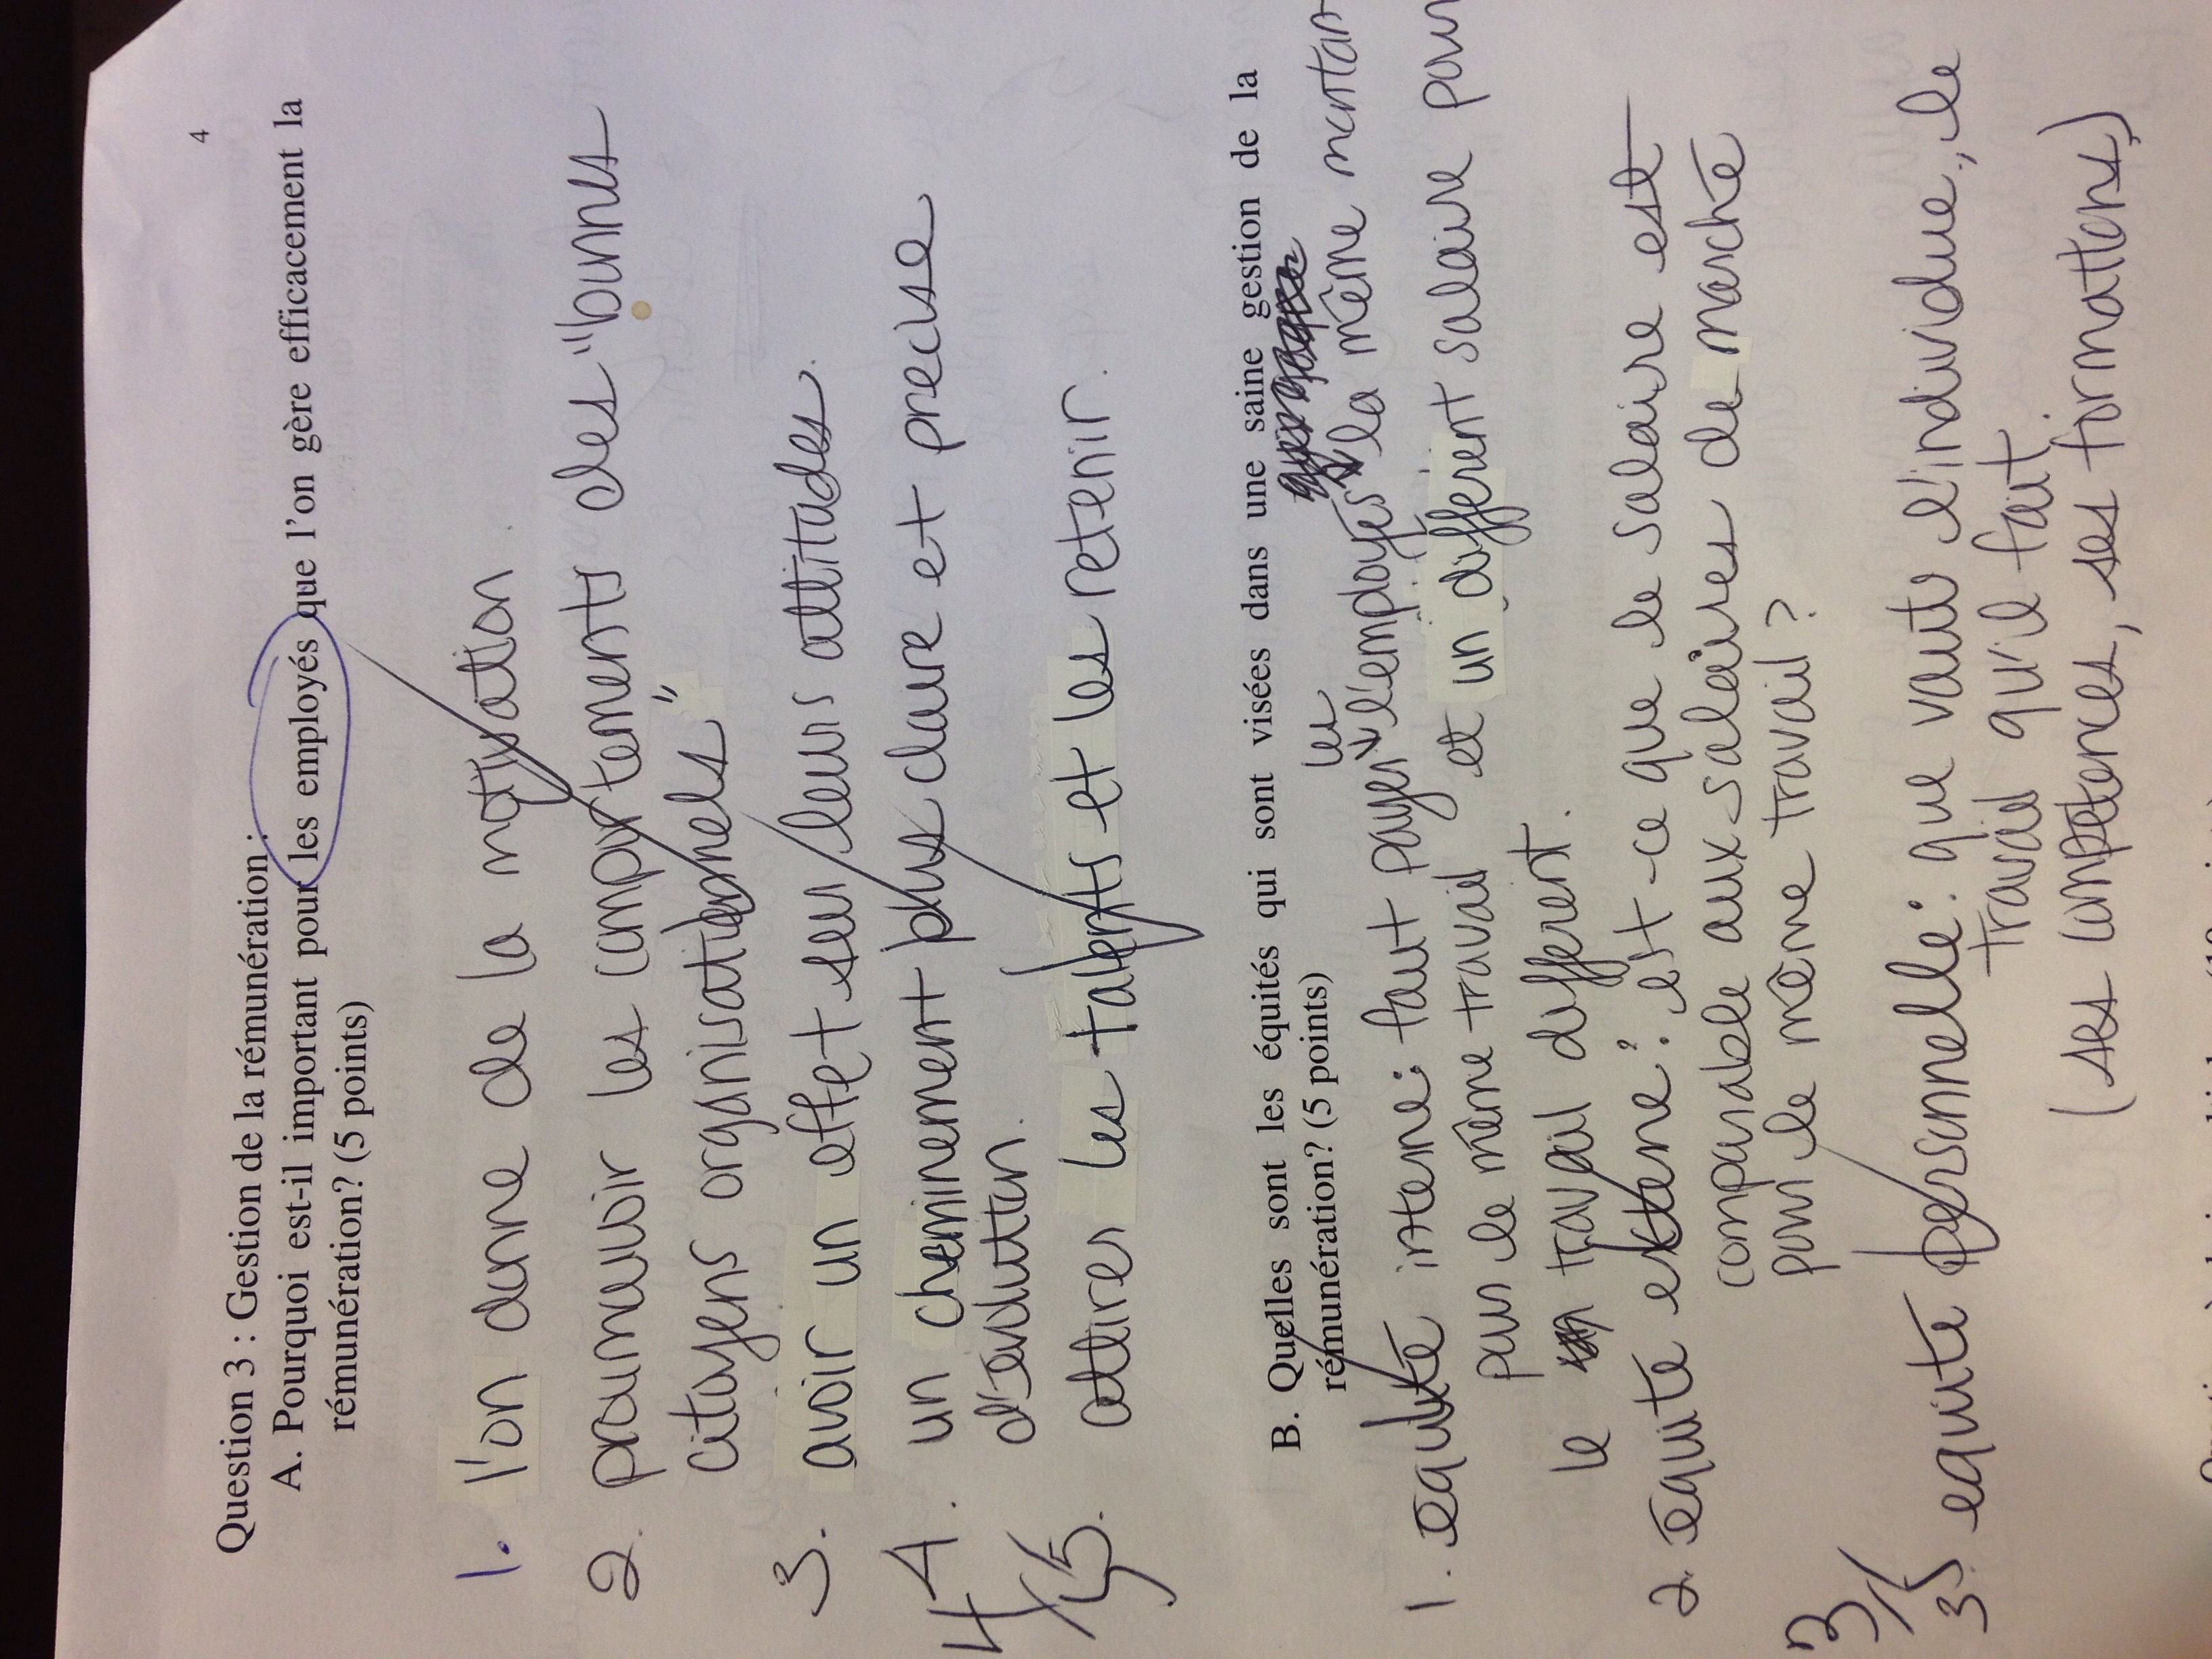 4
Question 3 : Gestion de la rémunération :
A. Pourquoi est-il important pour les employés que l'on gère efficacement la
rémunération? (5 points)
1. l'on donne de la motivation.
2. promouvoir les comportements des "bonnes
citoyens organisationnels"
3. avoir un effet sur leurs attitudes.
4. un cheminement plus claire et precise
d'évolution.
5. attirer les talents et les retenir.
4/5
B. Quelles sont les équités qui sont visées dans une saine gestion de la
rémunération? (5 points)
1. équité interne: faut payer les employés la même montan
pour le même travail et un différent salaire pour
le travail différent.
2. équité externe: est-ce que le salaire est
comparable aux salaires de marché
pour le même travail?
3. equité personnelle: que vaut l'individue, le
travail qu'il fait.
(ses compétences, ses formations)
3/5